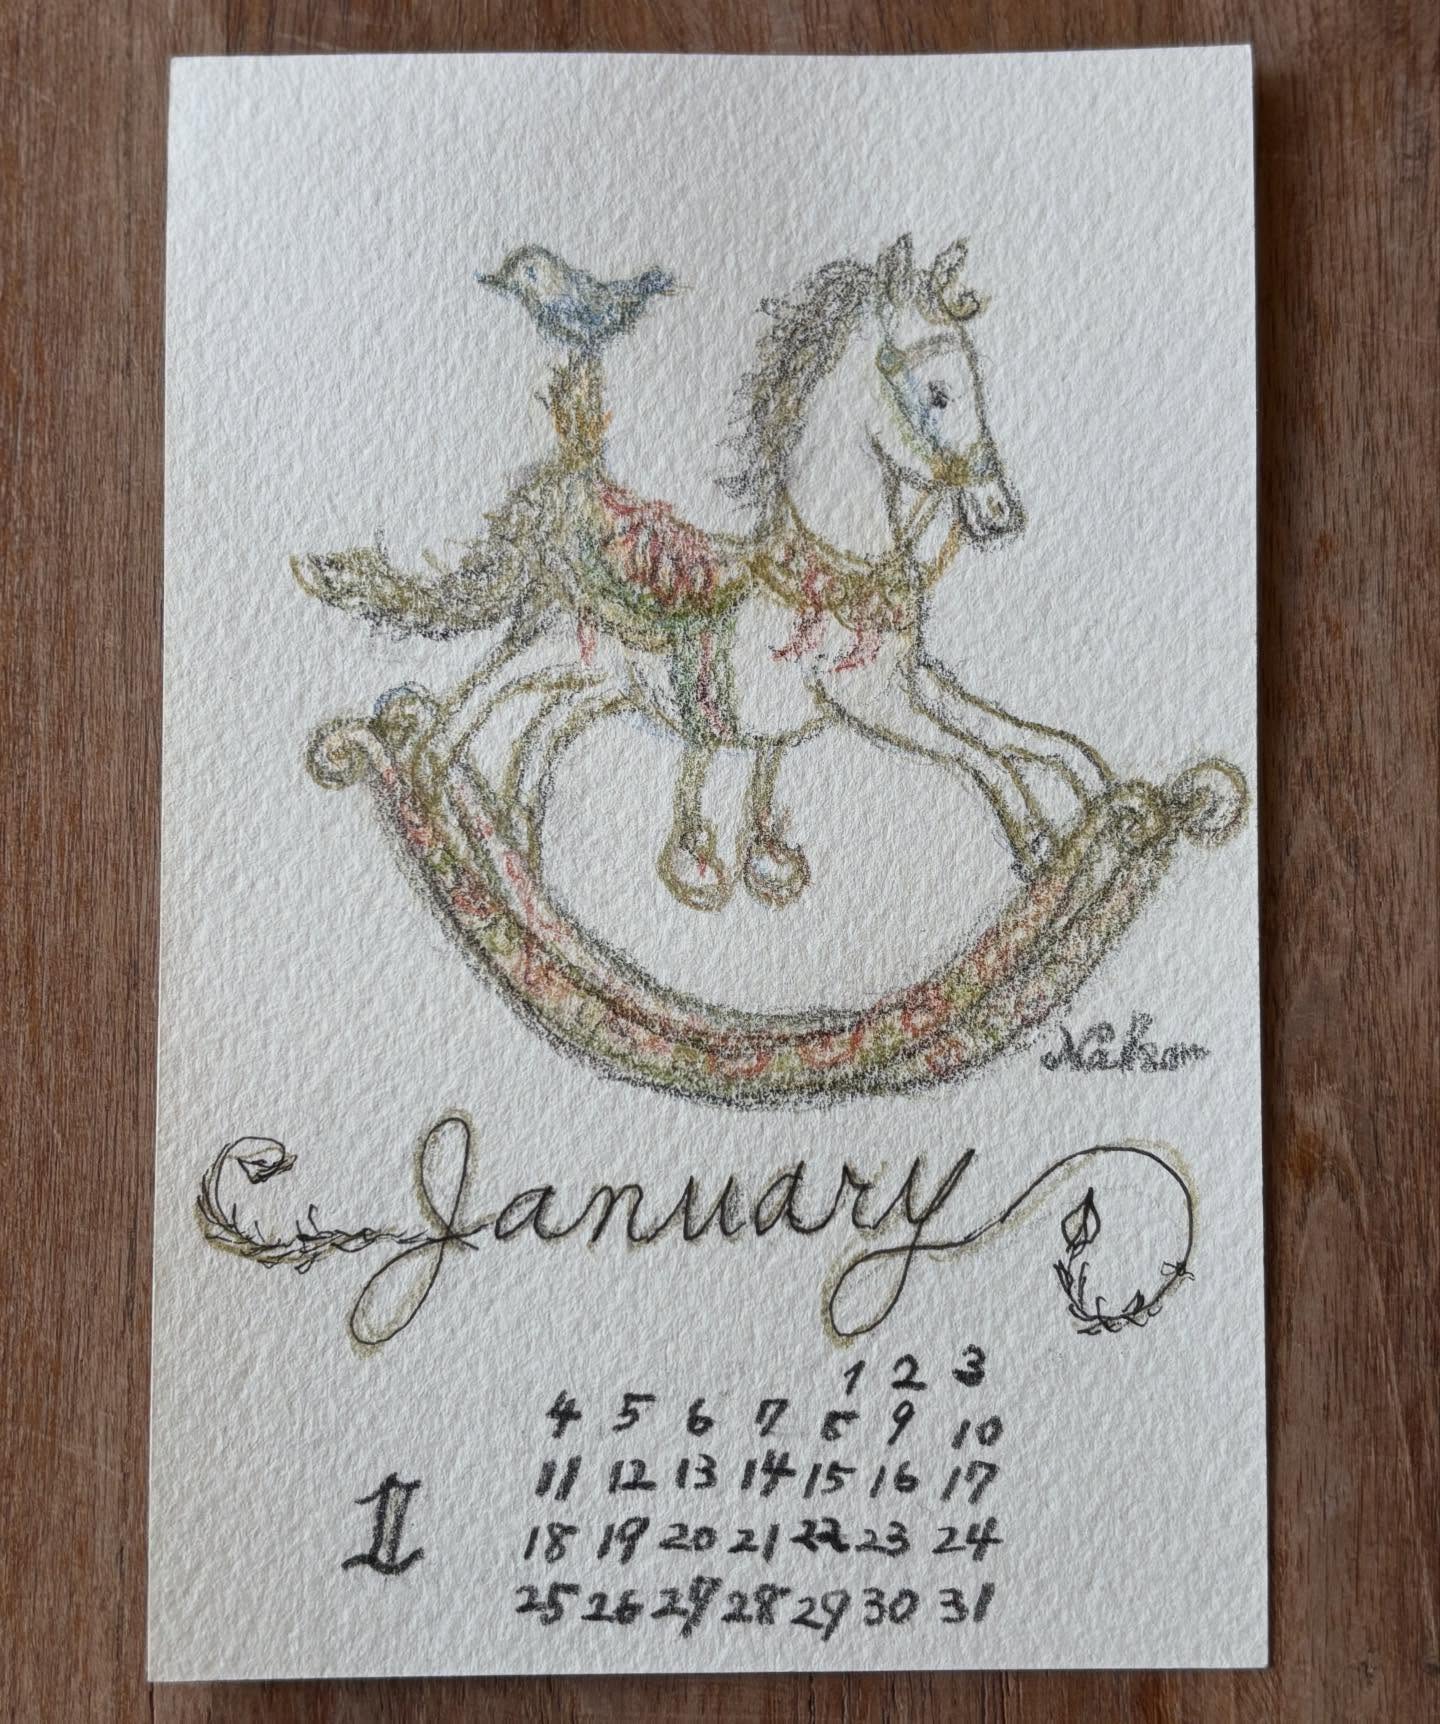 January
1 2 3
4 5 6 7 8 9 10
11 12 13 14 15 16 17
1
18 19 20 21 22 23 24
25 26 27 28 29 30 31